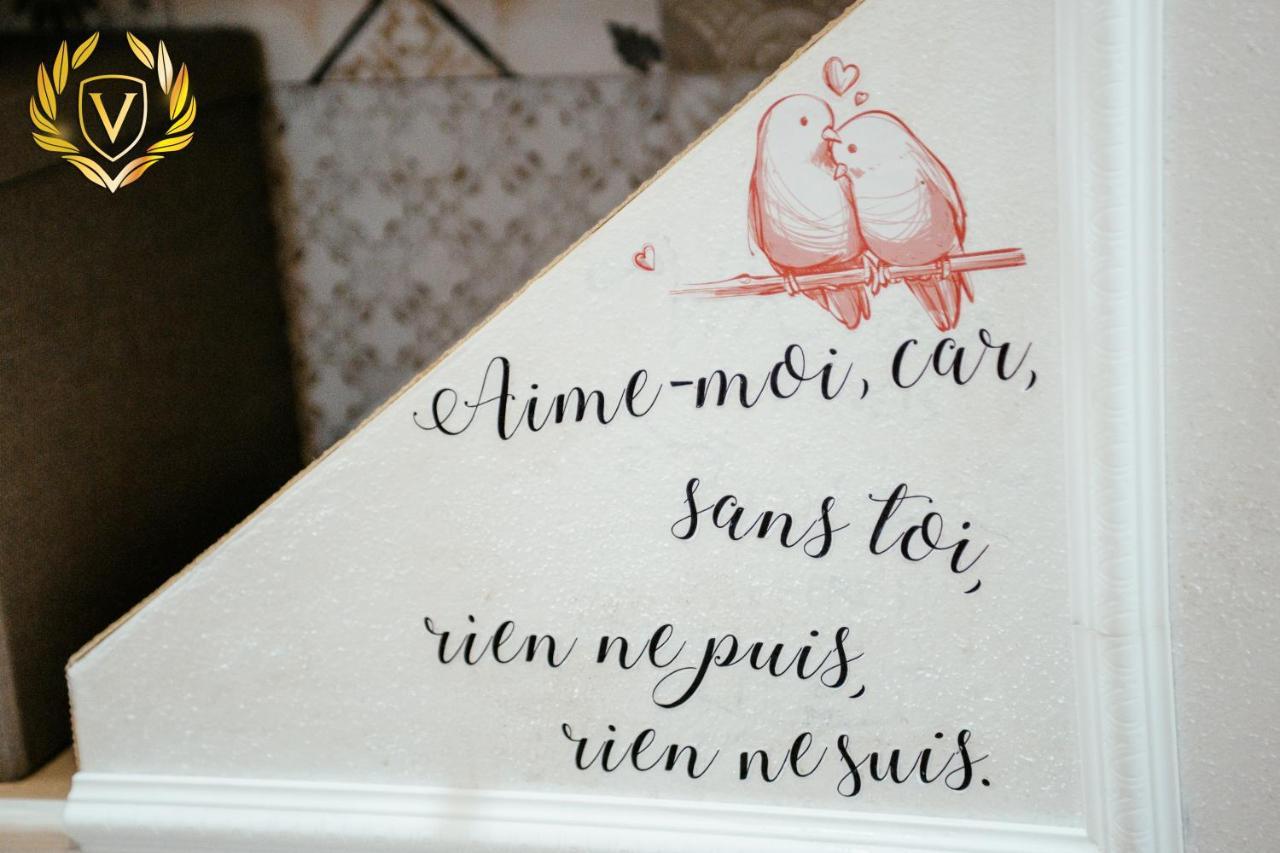 V
Aime-moi, car,
sans toi,
rien ne puis,
rien ne suis.